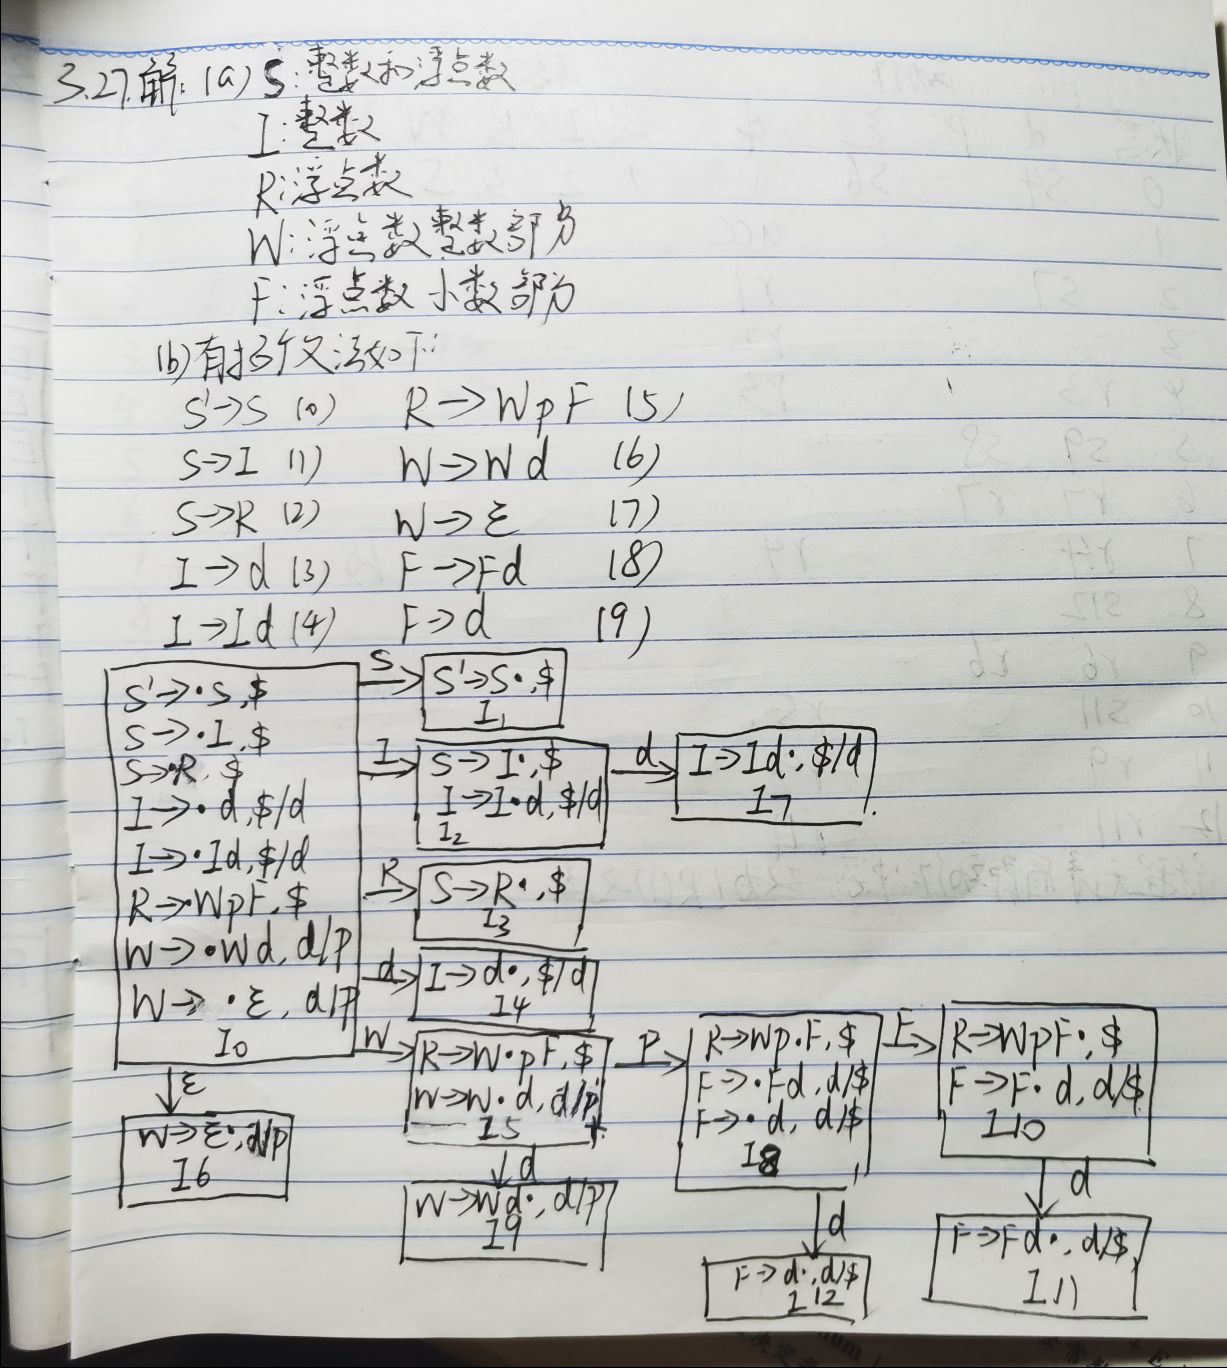 3.27.解: (a) S: 整数和浮点数
I: 整数
R: 浮点数
W: 浮点数整数部分
F: 浮点数小数部分
(b) 有拓广文法如下:
S'→S (0) R→WpF (5)
S→I (1) W→Wd (6)
S→R (2) W→ε (7)
I→d (3) F→Fd (8)
I→Id (4) F→d (9)
S'→·S,$
S→·I,$
S→·R,$
I→·d,$/d
I→·Id,$/d
R→·WpF,$
W→·Wd,d/p
W→·ε,d/p
I0
S
S'→S·,$
I1
I
S→I·,$
I→I·d,$/d
I2
d
I→Id·,$/d
I7
R
S→R·,$
I3
d
I→d·,$/d
I4
W
R→W·pF,$
W→W·d,d/p
I5
P
R→Wp·F,$
F→·Fd,d/$
F→·d,d/$
I8
F
R→WpF·,$
F→F·d,d/$
I10
ε
W→ε·,d/p
I6
d
W→Wd·,d/p
I9
d
F→d·,d/$
I12
d
F→Fd·,d/$
I11